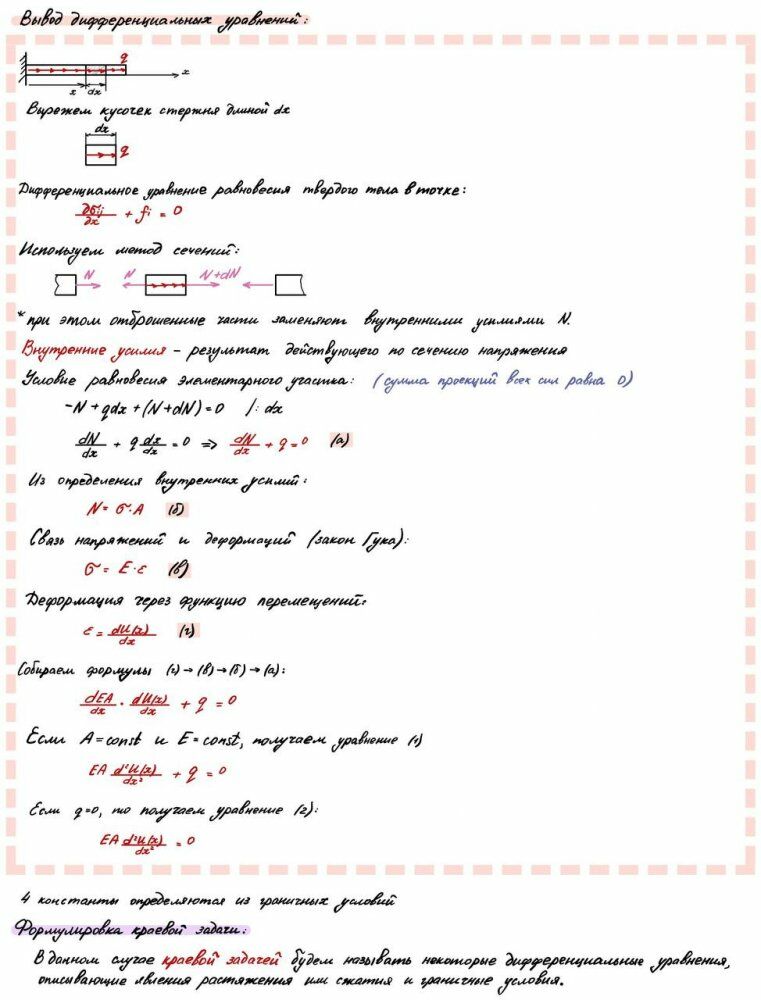 Вывод дифференциальных уравнений:
q
x
x dx
Вырежем кусочек стержня длиной dx
dx
q
Дифференциальное уравнение равновесия твердого тела в точке:
∂σij/∂x + fi = 0
Используем метод сечений:
N N N+dN
* при этом отброшенные части заменяют внутренними усилиями N.
Внутренние усилия – результат действующего по сечению напряжения
Условие равновесия элементарного участка: (сумма проекций всех сил равна 0)
-N + qdx + (N+dN) = 0 /: dx
dN/dx + q dx/dx = 0 => dN/dx + q = 0 (а)
Из определения внутренних усилий:
N = σ·A (б)
Связь напряжений и деформаций (закон Гука):
σ = E·ε (в)
Деформация через функцию перемещений:
ε = dU(x)/dx (г)
Собираем формулы (г)→(в)→(б)→(а):
dEA/dx · dU(x)/dx + q = 0
Если A=const и E=const, получаем уравнение (1)
EA d²U(x)/dx² + q = 0
Если q=0, то получаем уравнение (2):
EA d²U(x)/dx² = 0
4 константы определяются из граничных условий
Формулировка краевой задачи:
В данном случае краевой задачей будем называть некоторые дифференциальные уравнения,
описывающие явления растяжения или сжатия и граничные условия.